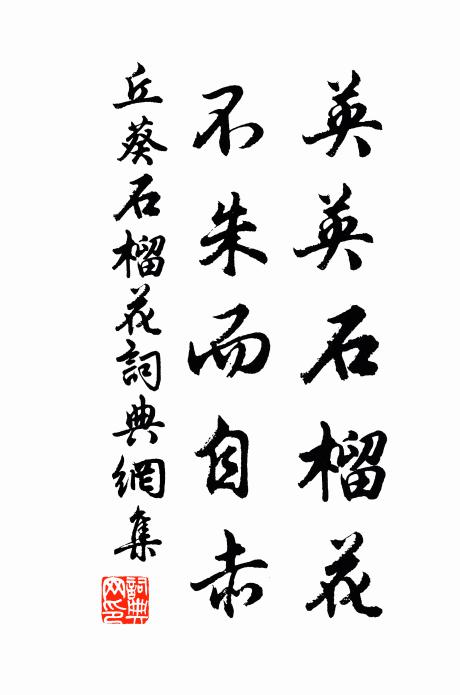 英英石榴花
不朱而自赤
丘葵石榴花詞典網集
詞典
网印